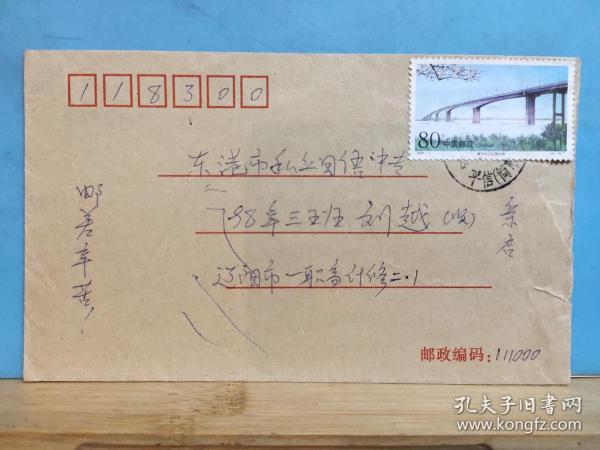 118300
80 中国邮政 CHINA
平信
东港市私立日语中专
98年三五班 刘越(收)
亲启
辽阳市一职高计修二.1
邮差辛苦!
邮政编码:111000
孔夫子旧书网
www.kongfz.com